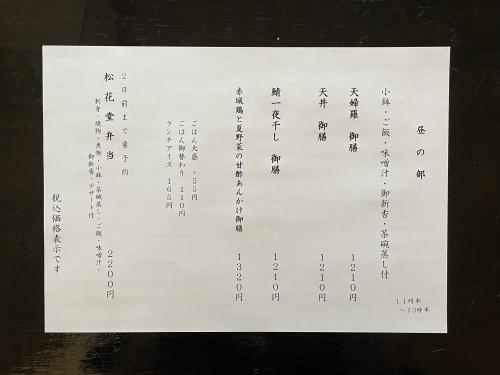 昼の部
11時半
～13時半
小鉢・ご飯・味噌汁・御新香・茶碗蒸し付
天婦羅　御膳　1210円
天丼　御膳　1210円
鯖一夜干し　御膳　1210円
赤城鶏と夏野菜の甘酢あんかけ御膳　1320円
ごはん大盛　+55円
ごはん御替わり　110円
ランチアイス　165円
2日前まで要予約
松花堂弁当　2200円
刺身・焼物・煮物・小鉢・茶碗蒸し・ご飯・味噌汁・
御新香・デザート付
税込価格表示です